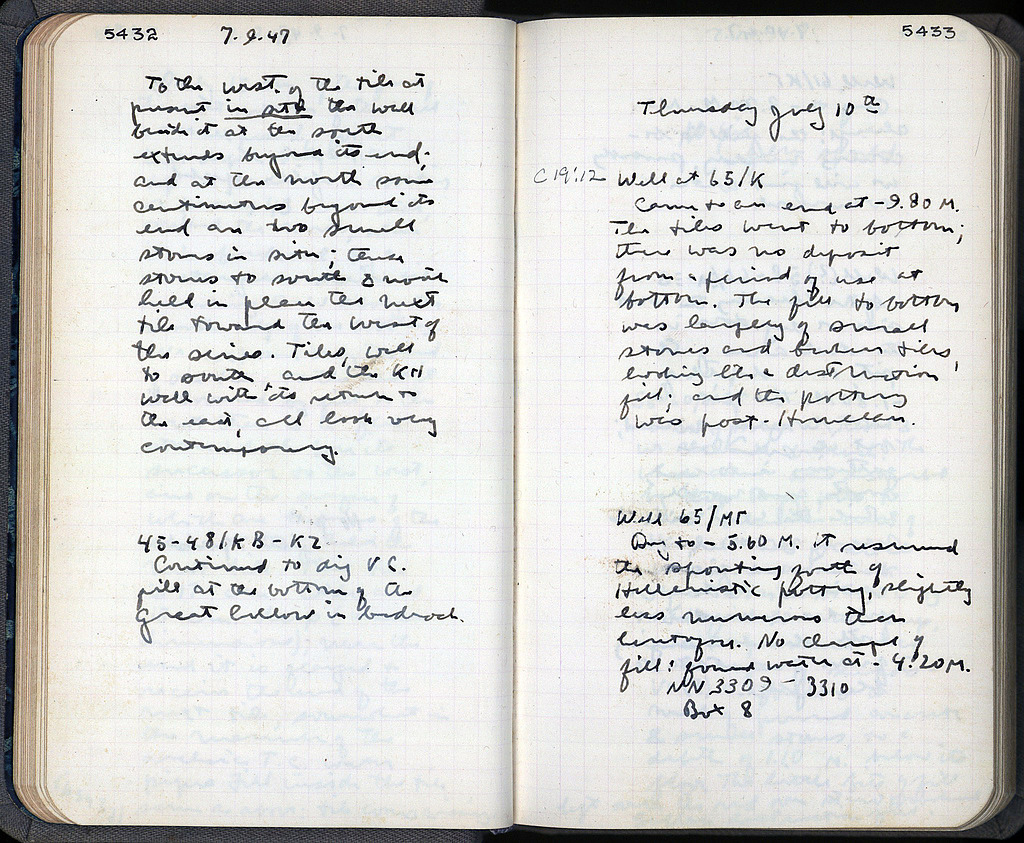 5432 7.9.47
To the west of the tile at
present in situ the wall
beside it at the south
extends beyond its end;
and at the north some
centimetres beyond its
end are two small
stones in situ; these
stones to south & north
held in place the next
tile toward the west of
the series. Tiles, wall
to south, and the KH
wall with its return to
the east, all look very
contemporary.
45-48/KB-KZ
Continued to dig V C.
fill at the bottom of the
great hollow in bedrock.
5433
Thursday July 10th
C 19:12 Well at 65/K
Came to an end at -9.80 M.
The tiles went to bottom;
there was no deposit
from a period of use at
bottom. The fill to bottom
was largely of small
stones and broken tiles,
looking like a destruction
fill; and the pottery
was post-Herulian.
Well 65/ΜΓ
Dug to -5.60 M. It resumed
the spouting forth of
Hellenistic pottery, slightly
less numerous than
heretofore. No change of
fill: found water at -4.20 M.
NN 3309 - 3310
Box 8